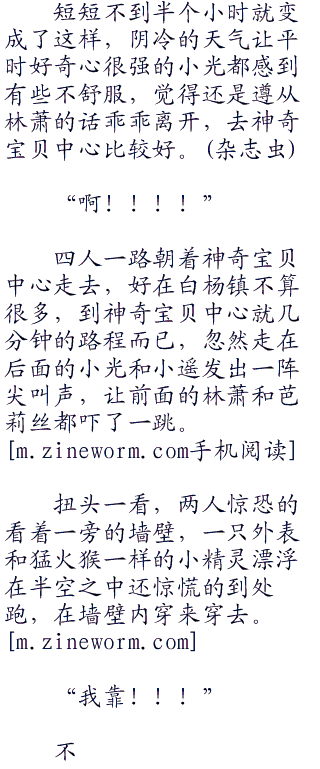 短短不到半个小时就变
成了这样，阴冷的天气让平
时好奇心很强的小光都感到
有些不舒服，觉得还是遵从
林萧的话乖乖离开，去神奇
宝贝中心比较好。(杂志虫)
“啊！！！！”
四人一路朝着神奇宝贝
中心走去，好在白杨镇不算
很多，到神奇宝贝中心就几
分钟的路程而已，忽然走在
后面的小光和小遥发出一阵
尖叫声，让前面的林萧和芭
莉丝都吓了一跳。
[m.zineworm.com手机阅读]
扭头一看，两人惊恐的
看着一旁的墙壁，一只外表
和猛火猴一样的小精灵漂浮
在半空之中还惊慌的到处
跑，在墙壁内穿来穿去。
[m.zineworm.com]
“我靠！！！”
不